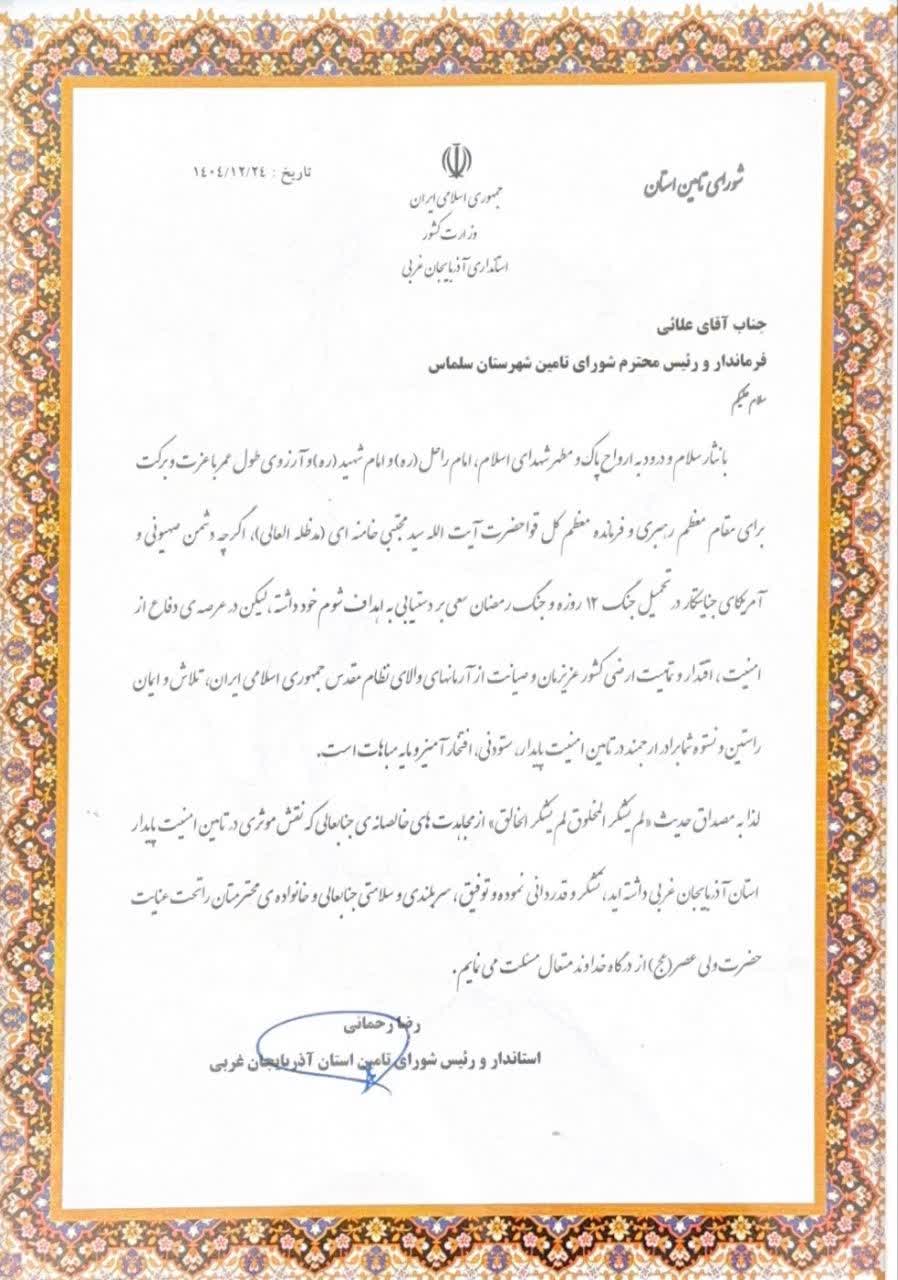 شورای تامین استان
تاریخ : ۱۴۰۴/۱۲/۲۴
جمهوری اسلامی ایران
وزارت کشور
استانداری آذربایجان غربی
جناب آقای علائی
فرماندار و رئیس محترم شورای تامین شهرستان سلماس
سلام علیکم
با نثار سلام و درود به ارواح پاک و مطهر شهدای اسلام، امام راحل (ره) و امام شهید (ره) و آرزوی طول عمر با عزت و برکت
برای مقام معظم رهبری و فرمانده معظم کل قوا حضرت آیت الله سید مجتبی خامنه ای (مدظله العالی)، اگرچه دشمن صهیونی و
آمریکای جنایتکار در تحمیل جنگ ۱۲ روزه و جنگ رمضان سعی بر دستیابی به اهداف شوم خود داشته، لیکن در عرصه ی دفاع از
امنیت، اقتدار و تمامیت ارضی کشور عزیزمان و صیانت از آرمانهای والای نظام مقدس جمهوری اسلامی ایران، تلاش و ایمان
راستین و نستوه شما برادر ارجمند در تامین امنیت پایدار، ستودنی، افتخار آمیز و مایه مباهات است.
لذا به مصداق حدیث «لم یشکر المخلوق لم یشکر الخالق» از مجاهدت های خالصانه ی جنابعالی که نقش موثری در تامین امنیت پایدار
استان آذربایجان غربی داشته اید، تشکر و قدردانی نموده و توفیق، سربلندی و سلامتی جنابعالی و خانواده ی محترمتان را تحت عنایت
حضرت ولی عصر (عج) از درگاه خداوند متعال مسئلت می نمایم.
رضا رحمانی
استاندار و رئیس شورای تامین استان آذربایجان غربی